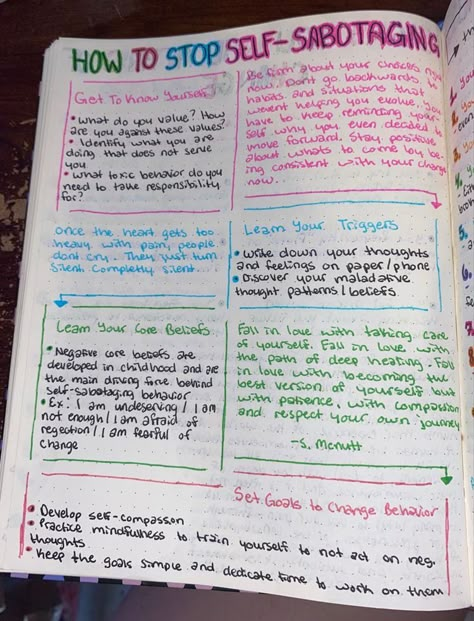 HOW TO STOP SELF-SABOTAGING
Get To Know Yourself
• What do you value? How
are you against these values?
• Identify what you are
doing that does not serve
you
• what toxic behavior do you
need to take responsibility
for?
Be firm about your choices
now. Don't go backwards
habits and situations that
werent helping you evolve. You
have to keep reminding your
self why you even decided to
move forward. Stay positive
about whats to come by be
ing consistent with your change
now..
Once the heart gets too
heavy with pain, people
dont cry. They just turn
silent. Completly silent...
Learn Your Triggers
• Write down your thoughts
and feelings on paper/phone
• Discover your maladative
thought patterns/beliefs
Learn Your Core Beliefs
• Negative core beliefs are
developed in childhood and are
the main driving force behind
self-sabotaging behavior
• Ex: I am undeserving/I am
not enough/I am afraid of
regection/I am fearful of
change
Fall in love with taking care
of yourself. Fall in love with
the path of deep healing. Fall
in love with becoming the
best version of yourself but
with patience, with compassion
and respect your own journey
-S. McNutt
Set Goals to Change Behavior
• Develop self-compasson
• Practice mindfulness to train yourself to not act on neg.
thoughts
• Keep the goals simple and dedicate time to work on them